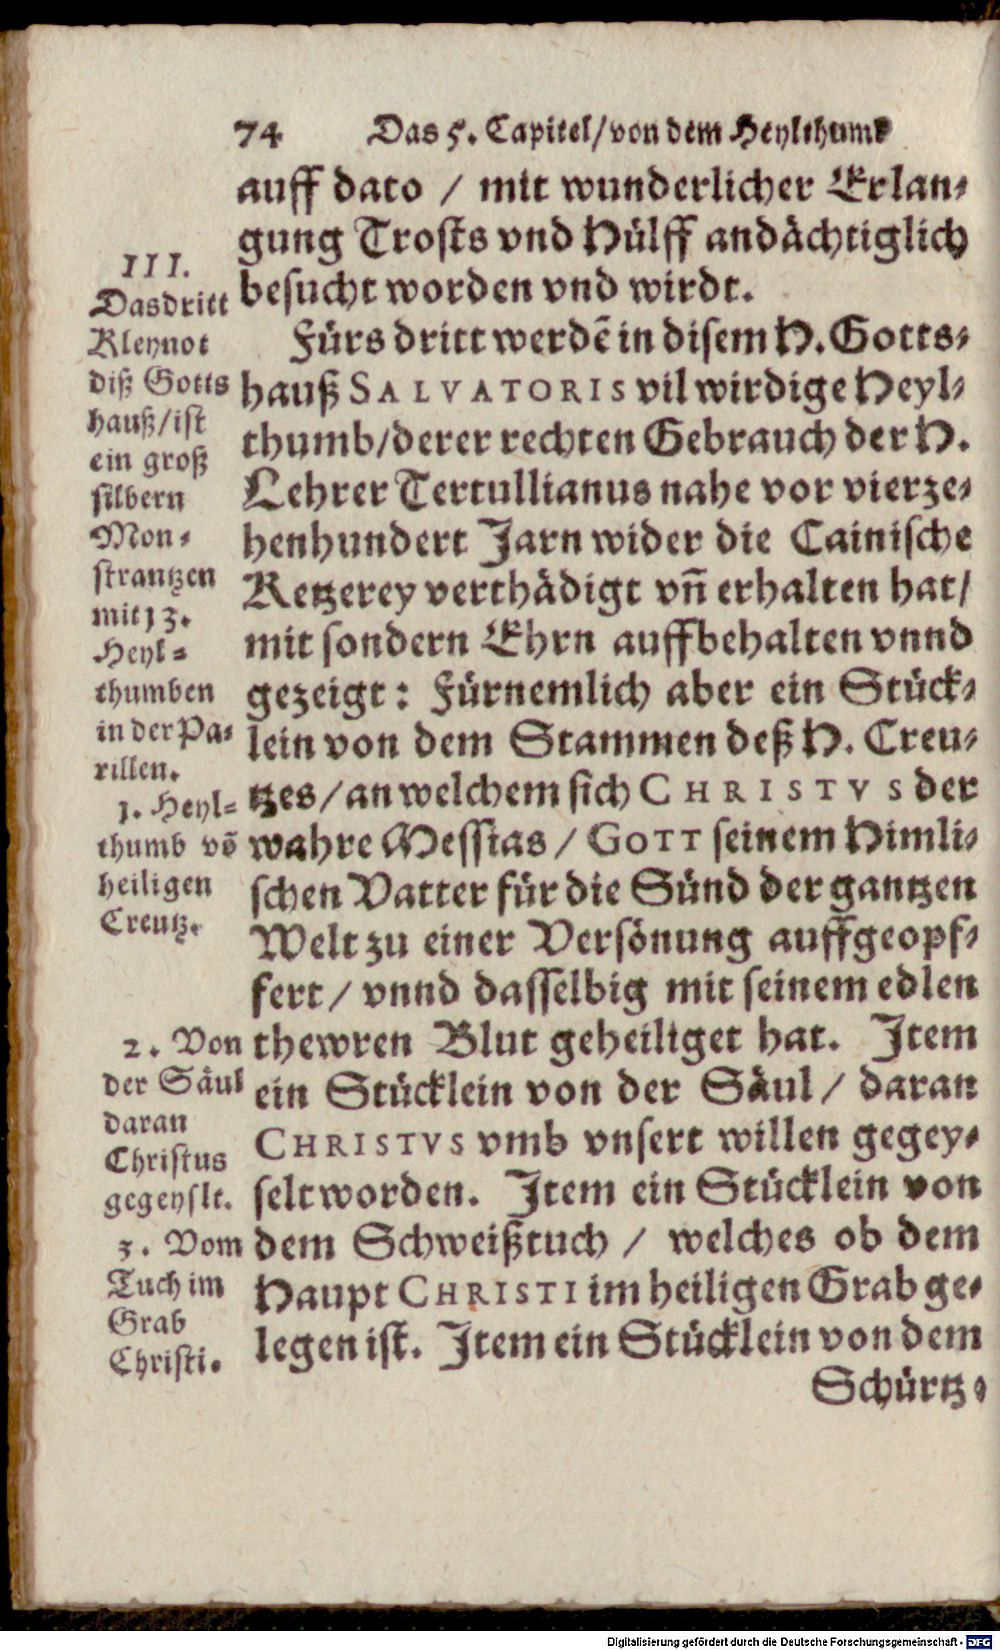 74 Das 5. Capitel/von dem Heylthumb
auff dato / mit wunderlicher Erlan⸗
gung Trosts vnd Hülff andächtiglich
besucht worden vnd wirdt.
Fürs dritt werdē in disem H. Gotts⸗
hauß SALVATORIS vil wirdige Heyl⸗
thumb/derer rechten Gebrauch der H.
Lehrer Tertullianus nahe vor vierze⸗
henhundert Jarn wider die Cainische
Ketzerey verthädigt vn̄ erhalten hat/
mit sondern Ehrn auffbehalten vnnd
gezeigt: Fürnemlich aber ein Stück⸗
lein von dem Stammen deß H. Creu⸗
tzes/an welchem sich CHRISTVS der
wahre Messias / GOTT seinem Himli⸗
schen Vatter für die Sünd der gantzen
Welt zu einer Versönung auffgeopf⸗
fert / vnnd dasselbig mit seinem edlen
thewren Blut geheiliget hat. Item
ein Stücklein von der Säul / daran
CHRISTVS vmb vnsert willen gegey⸗
selt worden. Item ein Stücklein von
dem Schweißtuch / welches ob dem
Haupt CHRISTI im heiligen Grab ge⸗
legen ist. Item ein Stücklein von dem
Schürtz⸗
III.
Das dritt
Kleynot
diß Gotts
hauß/ist
ein groß
silbern
Mon⸗
strantzen
mit 13.
Heyl⸗
thumben
in der Pa⸗
rillen.
1. Heyl⸗
thumb vō
heiligen
Creutz.
2. Von
der Säul
daran
Christus
gegeyslt.
3. Vom
Tuch im
Grab
Christi.
Digitalisierung gefördert durch die Deutsche Forschungsgemeinschaft - DFG